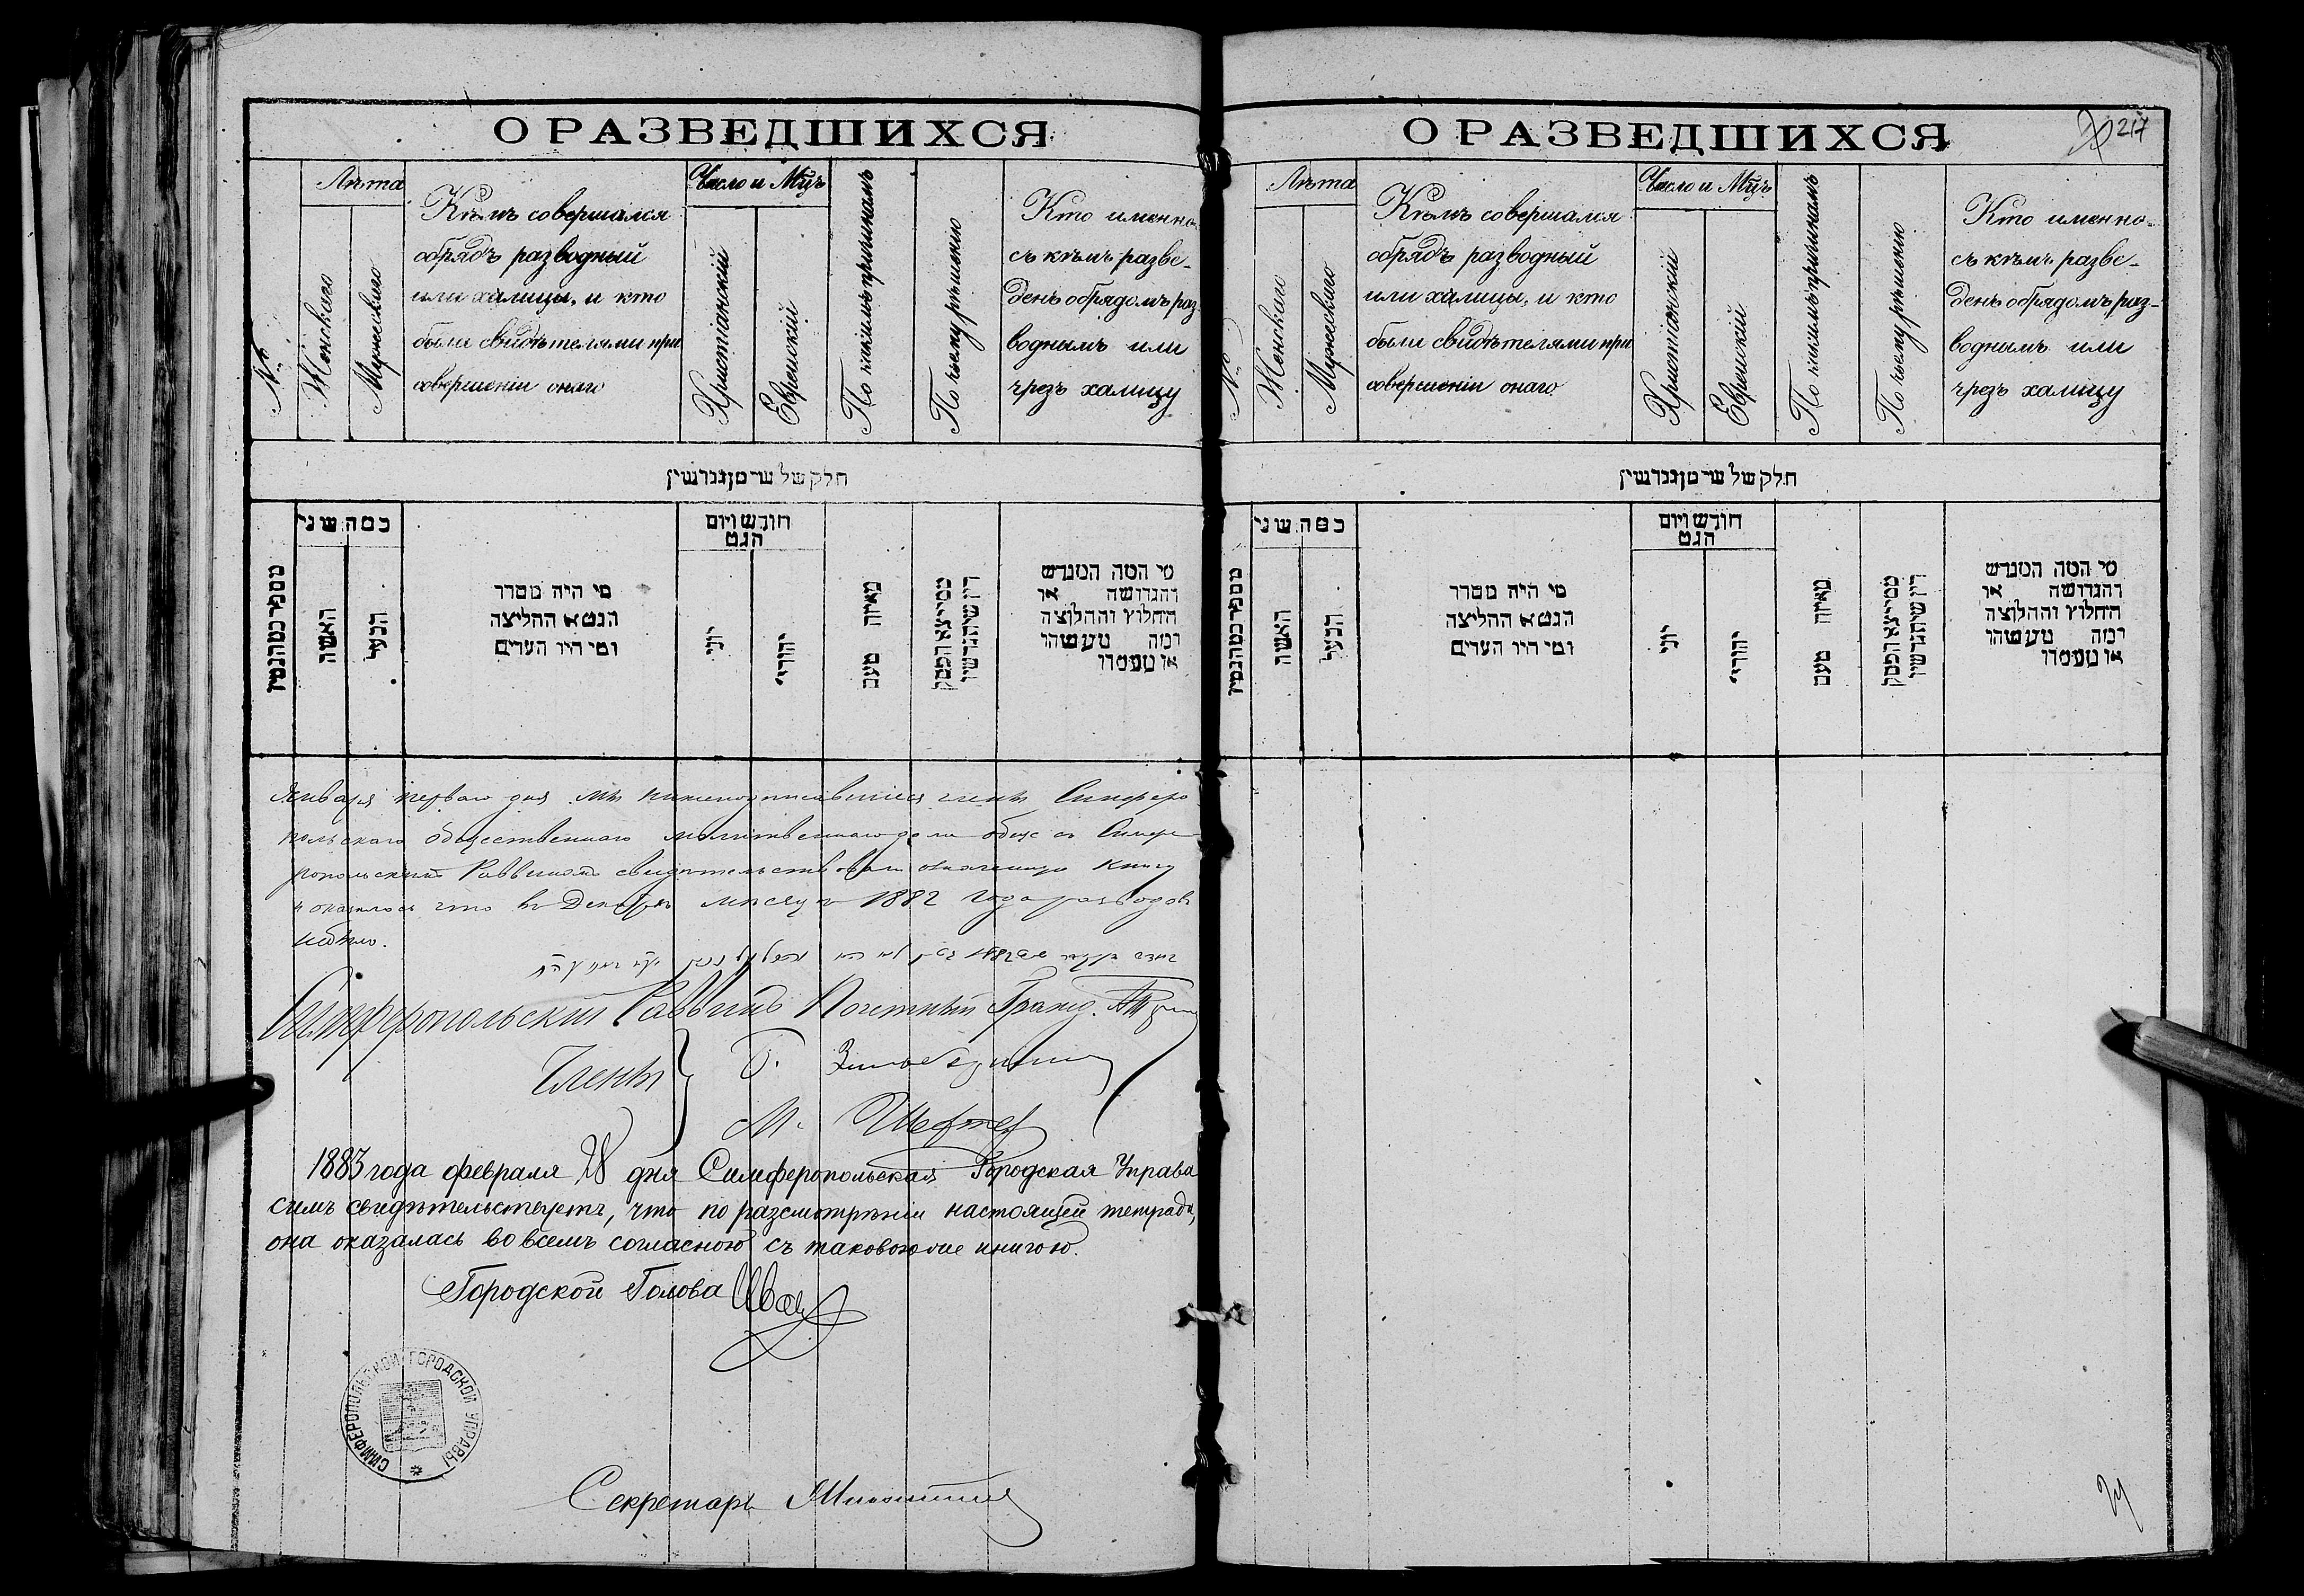 О РАЗВЕДШИХСЯ
№
Лѣта
Женскаго
Мужескаго
Кѣмъ совершался
обрядъ разводный
или халицы, и кто
были свидѣтелями при
совершеніи онаго
Число и Мцъ
Христіанскій
Еврейскій
По какимъ причинамъ
По чьему рѣшенію
Кто именно
съ кѣмъ разве-
денъ обрядомъ раз
воднымъ или
чрезъ халицу
חלק של שׁ מן גרושין
כמה שני
האשה
הבעל
מי היה מסדר
הגט א ההליצה
ומי היו העדים
חודש ויום
הגט
יוני
יהודי
מאיזה טעם
מי המה המגרש
והגרושה או
החלוץ והחלוצה
ומה מעשהו
או מעמדו
Января перваго дня мы нижеподписавшіеся члены Симферо
польскаго общественнаго молитвеннаго дома обще съ Симфе
ропольскимъ Раввиномъ свидѣтельствовали означенную книгу
и оказалось что въ Декабрѣ мѣсяцѣ 1882 года разводовъ
небыло.
Симферопольскій Раввинъ Почетный Гражд.
Члены
М.
1883 года февраля 28 дня Симферопольская Городская Управа
симъ свидѣтельствуетъ, что по разсмотрѣніи настоящей тетради,
она оказалась во всемъ согласною съ таковою же книгою.
Городской Голова
СИМФЕРОПОЛЬСКОЙ ГОРОДСКОЙ УПРАВЫ
Секретарь
О РАЗВЕДШИХСЯ
217
№
Лѣта
Женскаго
Мужескаго
Кѣмъ совершался
обрядъ разводный
или халицы, и кто
были свидѣтелями при
совершеніи онаго
Число и Мцъ
Христіанскій
Еврейскій
По какимъ причинамъ
По чьему рѣшенію
Кто именно
съ кѣмъ разве-
денъ обрядомъ раз-
воднымъ или
чрезъ халицу
חלק של שׁ מן גרושין
כמה שני
האשה
הבעל
מי היה מסדר
הגט א ההליצה
ומי היו העדים
חודש ויום
הגט
יוני
יהודי
מאיזה טעם
מי המה המגרש
והגרושה או
החלוץ והחלוצה
ומה מעשהו
או מעמדו